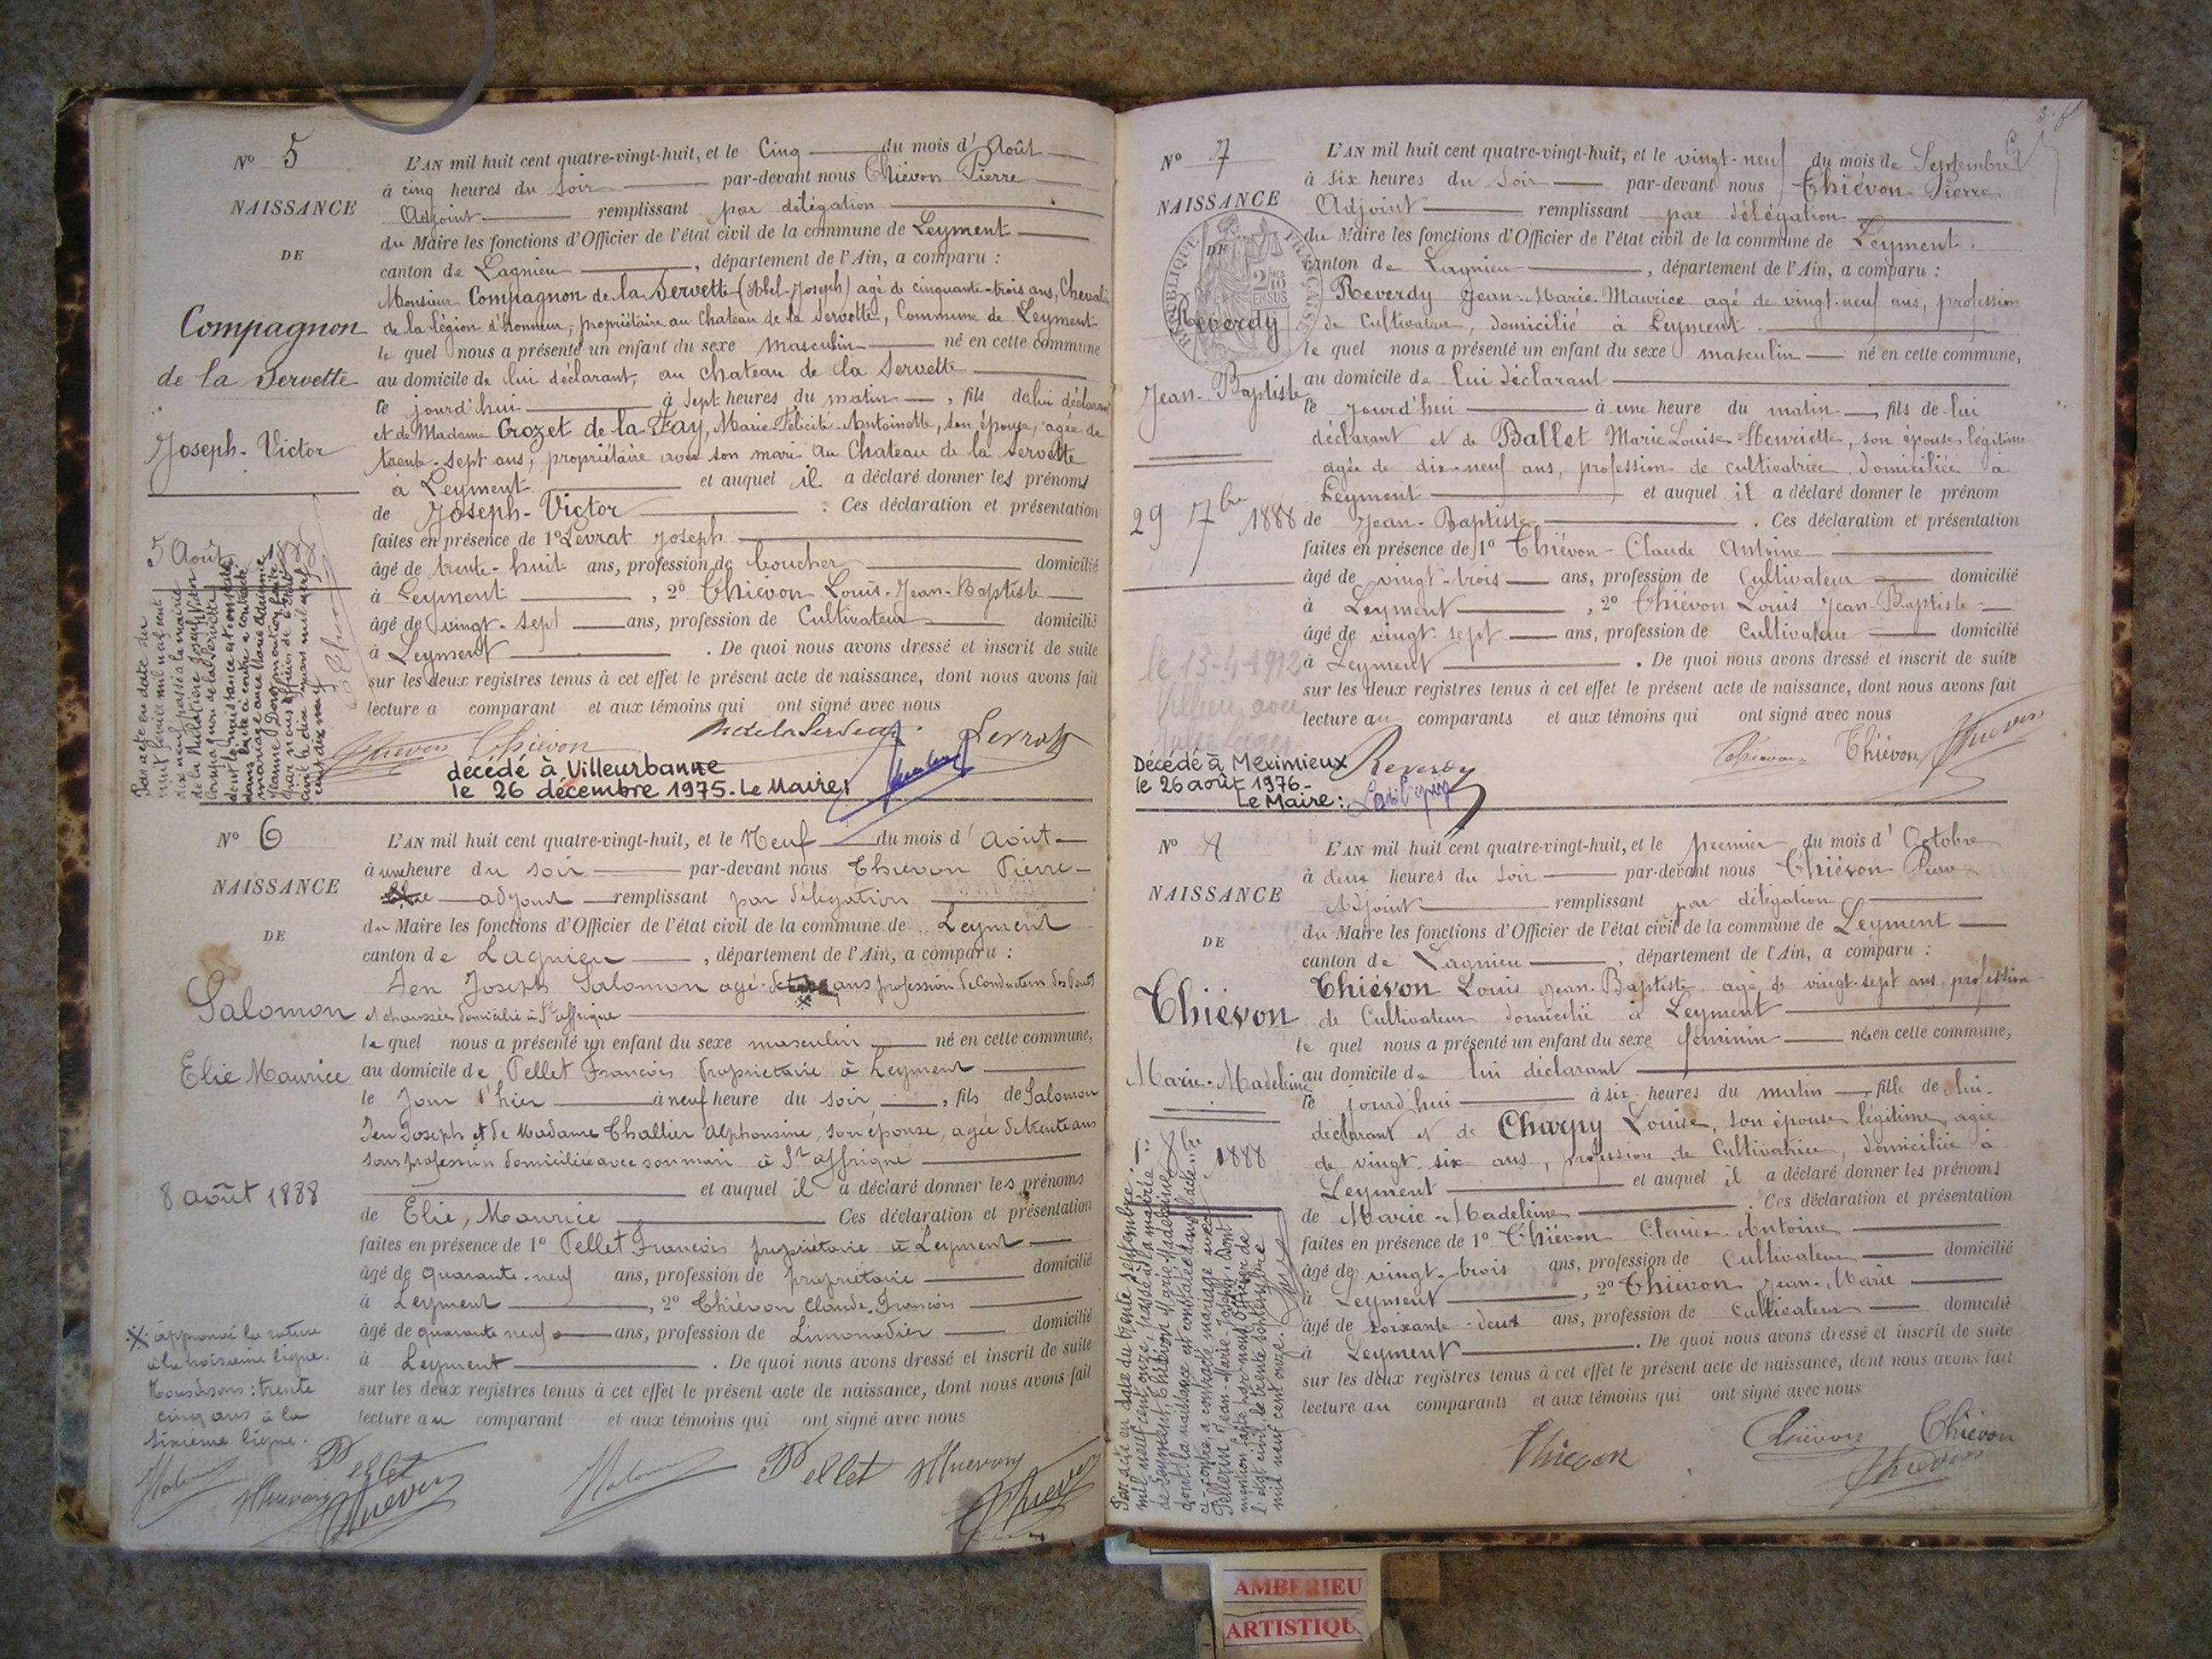 N° 5
NAISSANCE
DE
Compagnon
de la Servette
Joseph-Victor
5 Août 1888
L'AN mil huit cent quatre-vingt-huit, et le Cinq du mois d'Août
à cinq heures du Soir par-devant nous Thiévon Pierre
Adjoint remplissant par délégation
du Maire les fonctions d'Officier de l'état civil de la commune de Leyment
canton de Lagnieu, département de l'Ain, a comparu :
Monsieur Compagnon de la Servette (Abel-Joseph) agé de cinquante-trois ans, Chevalier
de la légion d'honneur, propriétaire au Chateau de la Servette, Commune de Leyment
le quel nous a présenté un enfant du sexe masculin né en cette commune
au domicile de lui déclarant, au chateau de la Servette
le jourd'hui à Sept heures du matin, fils de lui déclarant
et de Madame Crozet de la Fay, Marie-Félicité-Antoinette, son épouse, agée de
trente-sept ans, propriétaire avec son mari au Chateau de la Servette
à Leyment et auquel il a déclaré donner les prénoms
de Joseph-Victor. Ces déclaration et présentation
faites en présence de 1° Levrat Joseph
âgé de trente-huit ans, profession de boucher domicilié
à Leyment, 2° Thiévon Louis-Jean-Baptiste
âgé de vingt-sept ans, profession de Cultivateur domicilié
à Leyment. De quoi nous avons dressé et inscrit de suite
sur les deux registres tenus à cet effet le présent acte de naissance, dont nous avons fait
lecture a comparant et aux témoins qui ont signé avec nous
Thiévon Levrat
décédé à Villeurbanne
le 26 décembre 1975. Le Maire:
N° 6
NAISSANCE
DE
Salomon
Elie Maurice
8 août 1888
L'AN mil huit cent quatre-vingt-huit, et le Neuf du mois d'août
à une heure du soir par-devant nous Thievon Pierre
adjoint remplissant par délégation
du Maire les fonctions d'Officier de l'état civil de la commune de Leyment
canton de Lagnieu, département de l'Ain, a comparu :
Joseph Salomon agé de ans profession de Conducteur des Ponts
et chaussées domicilié à St affrique
le quel nous a présenté un enfant du sexe masculin né en cette commune,
au domicile de Pellet François Propriétaire à Leyment
le Jour d'hier à neuf heure du soir, fils de Salomon
Joseph et de Madame Challier Alphonsine, son épouse, agée de trente ans
sans profession domiciliée avec son mari à St affrique
et auquel il a déclaré donner les prénoms
de Elie, Maurice Ces déclaration et présentation
faites en présence de 1° Pellet François propriétaire à Leyment
âgé de quarante-neuf ans, profession de propriétaire domicilié
à Leyment, 2° Thiévon Claude-François
âgé de quarante neuf ans, profession de Limonadier domicilié
à Leyment. De quoi nous avons dressé et inscrit de suite
sur les deux registres tenus à cet effet le présent acte de naissance, dont nous avons fait
lecture au comparant et aux témoins qui ont signé avec nous
approuvé la rature
à la troisième ligne.
Nous disons : trente
cinq ans à la
sixième ligne.
Pellet Thievon
Pellet Thievon
N° 7
NAISSANCE
DE
RÉPUBLIQUE FRANÇAISE
2/10 EN SUS
Reverdy
Jean-Baptiste
29 7bre 1888
L'AN mil huit cent quatre-vingt-huit, et le vingt-neuf du mois de Septembre
à six heures du Soir par-devant nous Thiévon Pierre
Adjoint remplissant par délégation
du Maire les fonctions d'Officier de l'état civil de la commune de Leyment
canton de Lagnieu, département de l'Ain, a comparu :
Reverdy Jean-Marie-Maurice agé de vingt-neuf ans, profession
de Cultivateur, domicilié à Leyment.
le quel nous a présenté un enfant du sexe masculin né en cette commune,
au domicile de lui déclarant
le jourd'hui à une heure du matin, fils de lui
déclarant et de Ballet Marie Louise Henriette, son épouse légitime
agée de dix-neuf ans, profession de cultivatrice, domiciliée à
Leyment et auquel il a déclaré donner le prénom
de Jean-Baptiste. Ces déclaration et présentation
faites en présence de 1° Thiévon-Claude Antoine
âgé de vingt-trois ans, profession de Cultivateur domicilié
à Leyment, 2° Thiévon Louis Jean-Baptiste
âgé de vingt-sept ans, profession de Cultivateur domicilié
à Leyment. De quoi nous avons dressé et inscrit de suite
sur les deux registres tenus à cet effet le présent acte de naissance, dont nous avons fait
lecture au comparants et aux témoins qui ont signé avec nous
le 13-4-1912
Reverdy Thiévon Thiévon
Décédé à Meximieux
le 26 août 1976.
Le Maire:
N° 8
NAISSANCE
DE
Thiévon
Marie-Madeleine
1er 8bre 1888
L'AN mil huit cent quatre-vingt-huit, et le premier du mois d'Octobre
à deux heures du Soir par-devant nous Thiévon Pierre
Adjoint remplissant par délégation
du Maire les fonctions d'Officier de l'état civil de la commune de Leyment
canton de Lagnieu, département de l'Ain, a comparu :
Thiévon Louis Jean-Baptiste agé de vingt-sept ans profession
de Cultivateur domicilié à Leyment
le quel nous a présenté un enfant du sexe féminin née en cette commune,
au domicile de lui déclarant
le jourd'hui à six heures du matin, fille de lui
déclarant et de Charpy Louise, son épouse légitime, agée
de vingt-six ans, profession de Cultivatrice, domiciliée à
Leyment et auquel il a déclaré donner les prénoms
de Marie-Madeleine. Ces déclaration et présentation
faites en présence de 1° Thiévon Claude-Antoine
âgé de vingt-trois ans, profession de Cultivateur domicilié
à Leyment, 2° Thiévon Jean-Marie
âgé de soixante-deux ans, profession de Cultivateur domicilié
à Leyment. De quoi nous avons dressé et inscrit de suite
sur les deux registres tenus à cet effet le présent acte de naissance, dont nous avons fait
lecture au comparants et aux témoins qui ont signé avec nous
Par acte en date du trente septembre
mil neuf cent onze, passé à la mairie
de Leyment, Thiévon Marie-Madeleine
dont la naissance est constatée dans l'acte
ci-contre, a contracté mariage avec
Pellerin Jean-Marie-Joseph, dont
mention faite par nous Officier de
l'état civil, le trente septembre
mil neuf cent onze.
Thiévon Thiévon Thiévon
AMBERIEU
ARTISTIQU